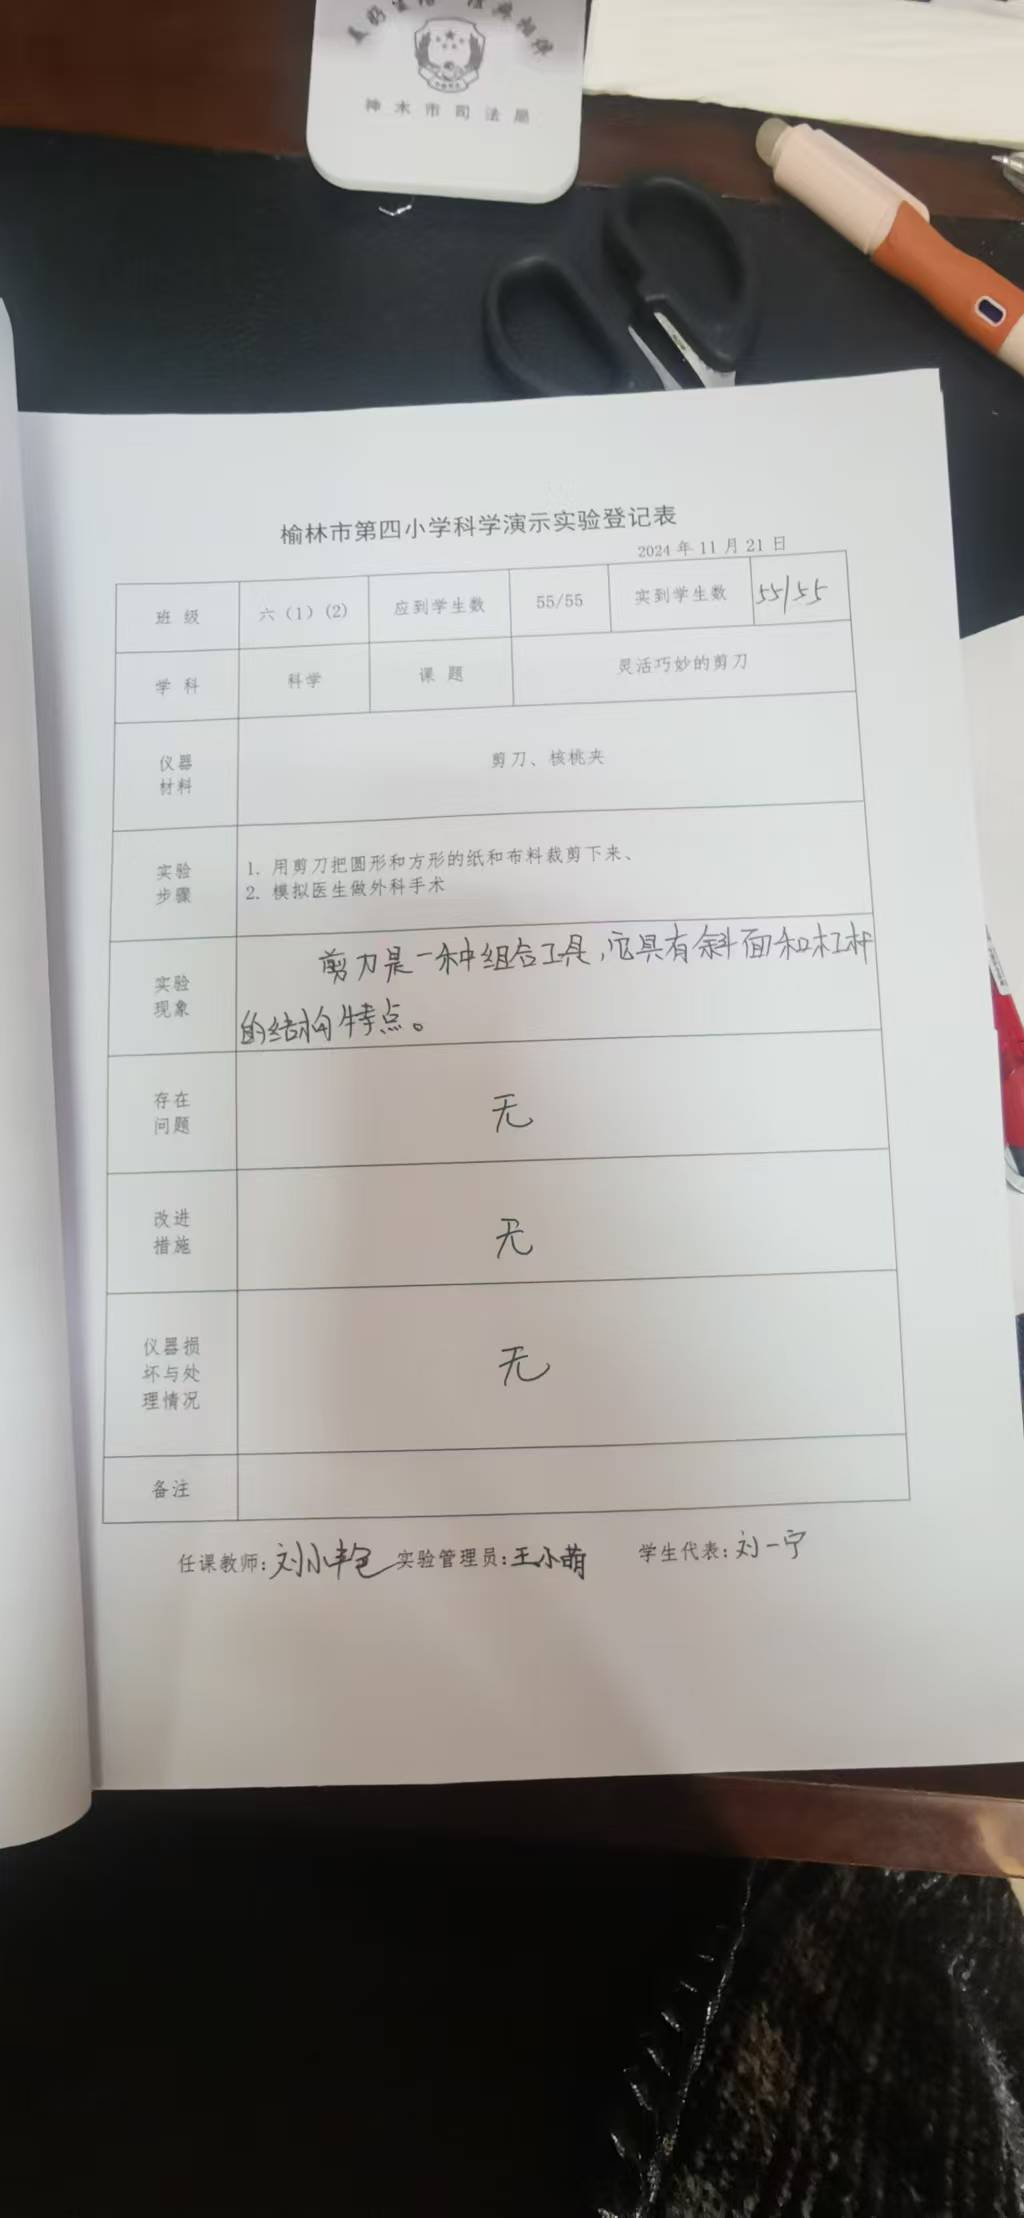 美好生活 法典相伴
神木市司法局
榆林市第四小学科学演示实验登记表
2024 年 11 月 21 日
班 级 六（1）(2) 应到学生数 55/55 实到学生数 55/55
学 科 科学 课 题 灵活巧妙的剪刀
仪器
材料
剪刀、核桃夹
实验
步骤
1. 用剪刀把圆形和方形的纸和布料裁剪下来、
2. 模拟医生做外科手术
实验
现象
剪刀是一种组合工具,它具有斜面和杠杆
的结构特点。
存在
问题
无
改进
措施
无
仪器损
坏与处
理情况
无
备注
任课教师: 刘小艳 实验管理员: 王小萌 学生代表: 刘一宁